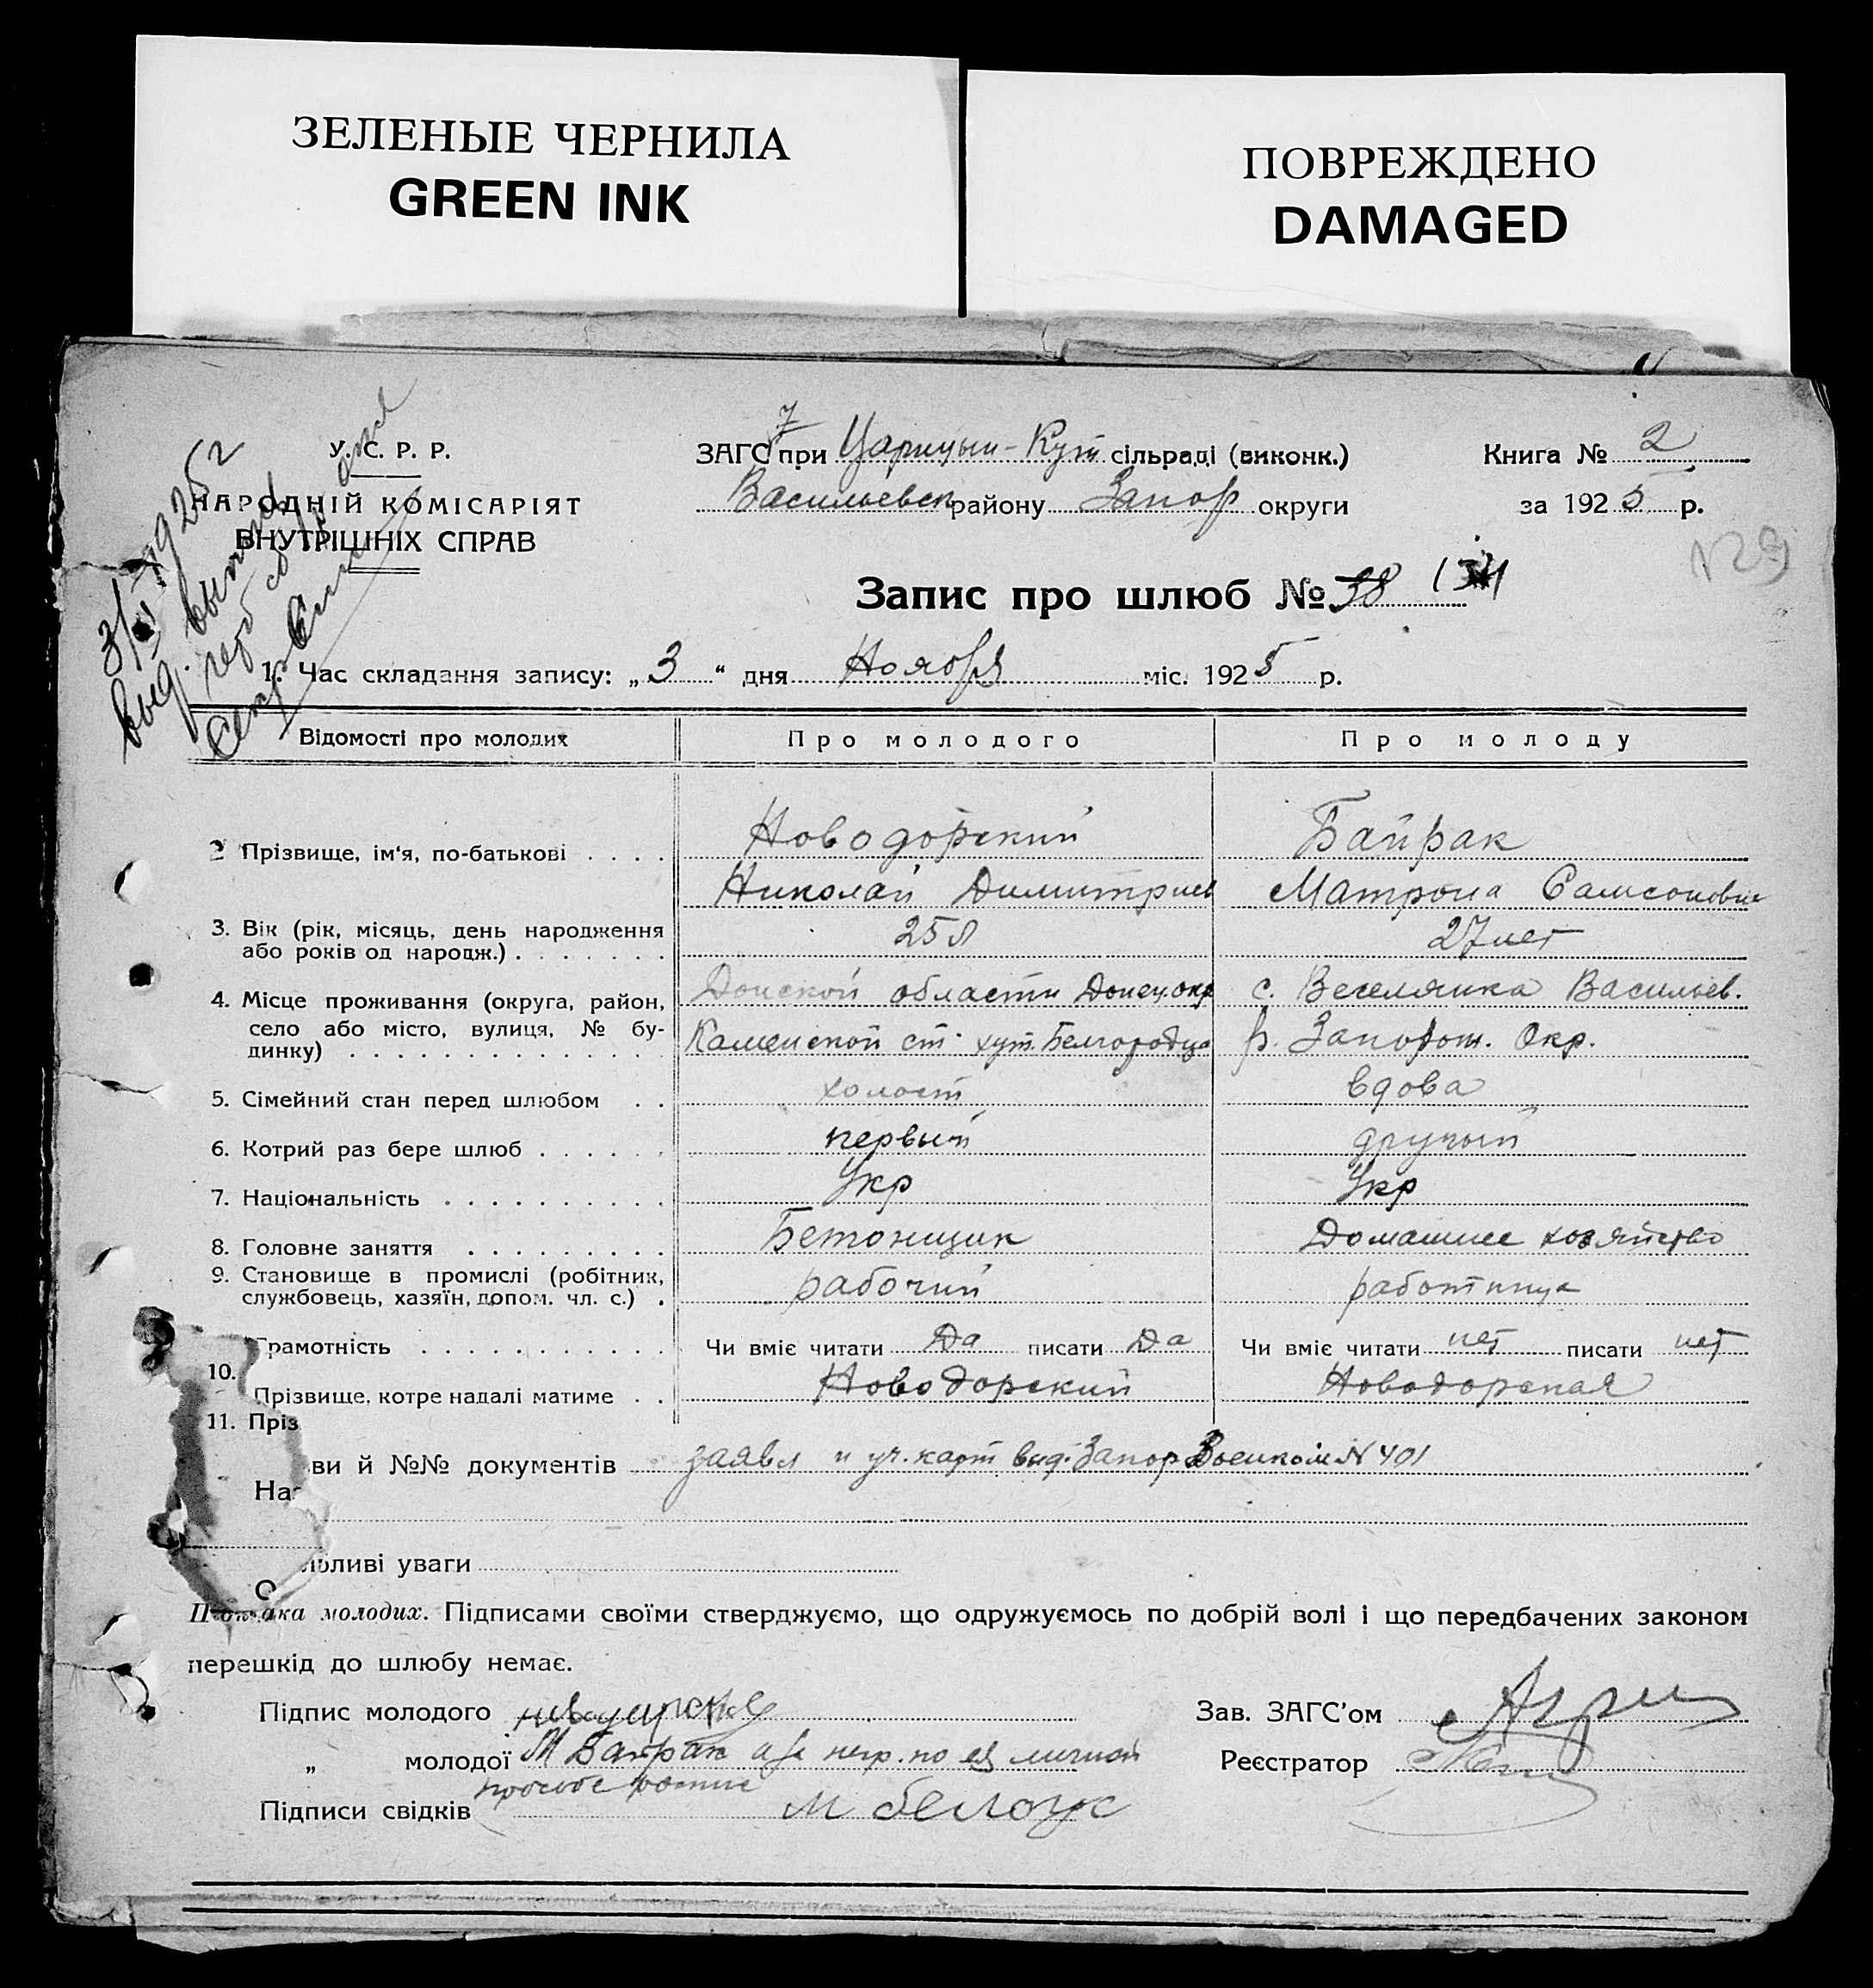 ЗЕЛЕНЫЕ ЧЕРНИЛА
GREEN INK
ПОВРЕЖДЕНО
DAMAGED
У. С. Р. Р.
НАРОДНІЙ КОМІСАРІЯТ
ВНУТРІШНІХ СПРАВ
3/XI 1925 г
выд.
ЗАГС при Царицын-Кут сільраді (виконк.)
Васильевск району Запор округи
Книга № 2
за 1925 р.
129
Запис про шлюб № 38 134
1. Час складання запису: „3“ дня Ноября міс. 1925 р.
Відомості про молодих Про молодого Про молоду
2 Прізвище, ім'я, по-батькові . . . . Новодорский Байрак
Николай Димитриев Матрона Самсоновна
3. Вік (рік, місяць, день народження
або років од народж.) . . . . . . . 25 л 27 лет
4. Місце проживання (округа, район,
село або місто, вулиця, № бу-
динку) . . . . . . . . . . . . . .
Донской области Донец. окр с. Веселянка Васильев.
Каменской ст. хут. Белгородца р. Запорож. Окр.
5. Сімейний стан перед шлюбом . . холост вдова
6. Котрий раз бере шлюб . . . . . . первый другий
7. Національність . . . . . . . . . . Укр Укр
8. Головне заняття . . . . . . . . . Бетонщик Домашнее хозяйство
9. Становище в промислі (робітник,
службовець, хазяїн, допом. чл. с.) . рабочий работница
рамотність . . . . . . . . . . . Чи вміє читати Да писати Да Чи вміє читати нет писати нет
10.
Прізвище, котре надалі матиме . . Новодорский Новодорская
11. Пріз
ви й №№ документів заявл и уч. карт выд. Запор Военком № 401
Наз
ливі уваги
О
ка молодих. Підписами своїми стверджуємо, що одружуємось по добрій волі і що передбачених законом
перешкід до шлюбу немає.
Підпис молодого
Зав. ЗАГС'ом
„ молодої М Байрак а за негр. по ея личной
просьбе роспис
Реєстратор
Підписи свідків М Белоус